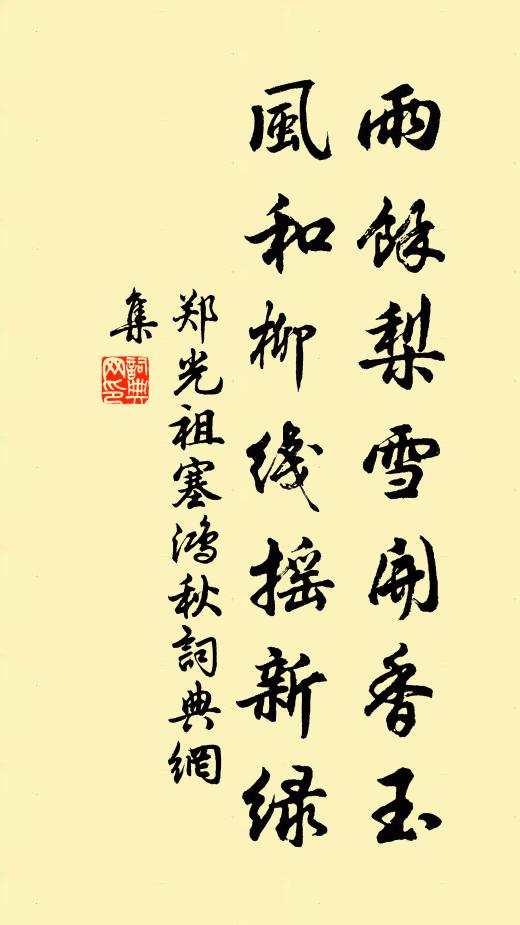 雨餘梨雪開香玉
風和柳线摇新绿
郑光祖塞鴻秋詞典網
集
詞典网印